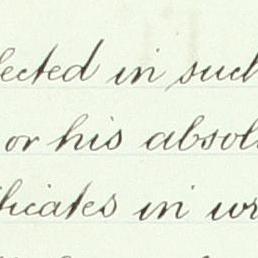 lected in such
or his absol
ficates in wr